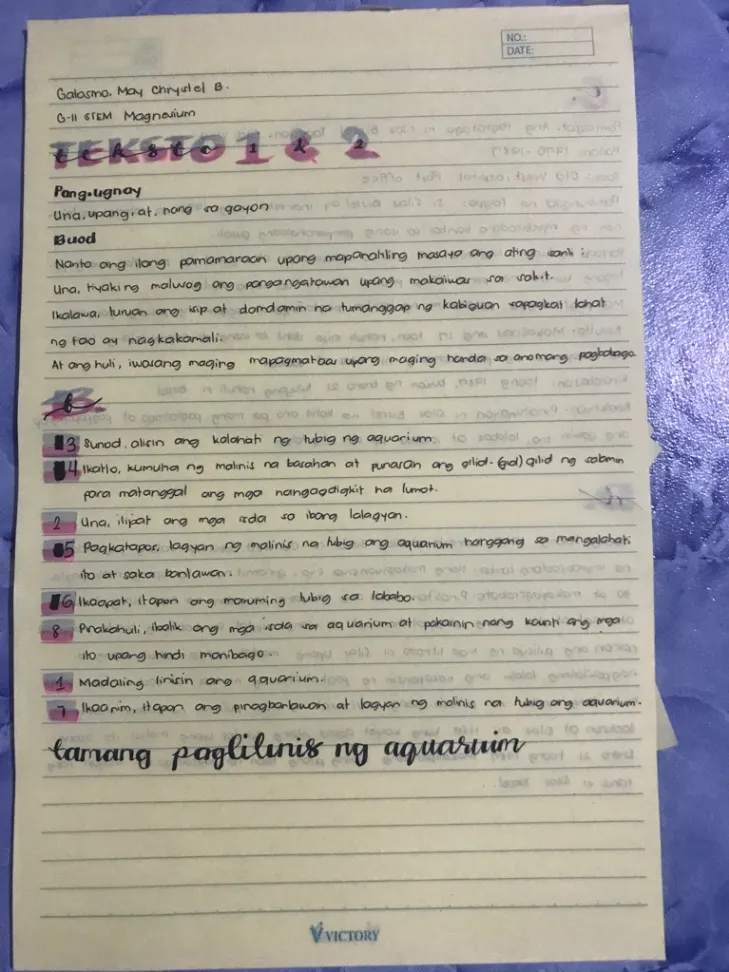 NO.:
DATE:
Galasmo, May Chrystel B.
G-11 STEM Magnesium
TEKSTO 1 & 2
Pang-ugnay
Una, upang, at, nang sa gayon
Buod
Nanto ang ilang pamamaraan upang mapanatiling masaya ang ating sarili:
Una, tiyaking malusog ang pangangatawan upang makaiwas sa sakit.
Ikalawa, turuan ang isip at damdamin na tumanggap ng kabiguan sapagkat lahat
ng tao ay nagkakamali.
At ang huli, iwasang maging mapagmataas upang maging handa sa anomang pagbabago.
3 Sunod, alisin ang kalahati ng tubig ng aquarium.
4 Ikatlo, kumuha ng malinis na basahan at punasan ang gilid-gilid ng salamin
para matanggal ang mga nangagdigkit na lumot.
2 Una, ilipat ang mga isda sa ibang lalagyan.
5 Pagkatapos, lagyan ng malinis na tubig ang aquarium hanggang sa mangalahati
ito at saka banlawan.
6 Ikaapat, itapon ang maruming tubig sa lababo.
8 Pinakahuli, ibalik ang mga isda sa aquarium at pakainin nang kaunti ang mga
ito upang hindi manibago.
1 Madaling linisin ang aquarium.
7 Ikaanim, itapon ang pinagbanlawan at lagyan ng malinis na tubig ang aquarium.
tamang paglilinis ng aquaruim
VICTORY